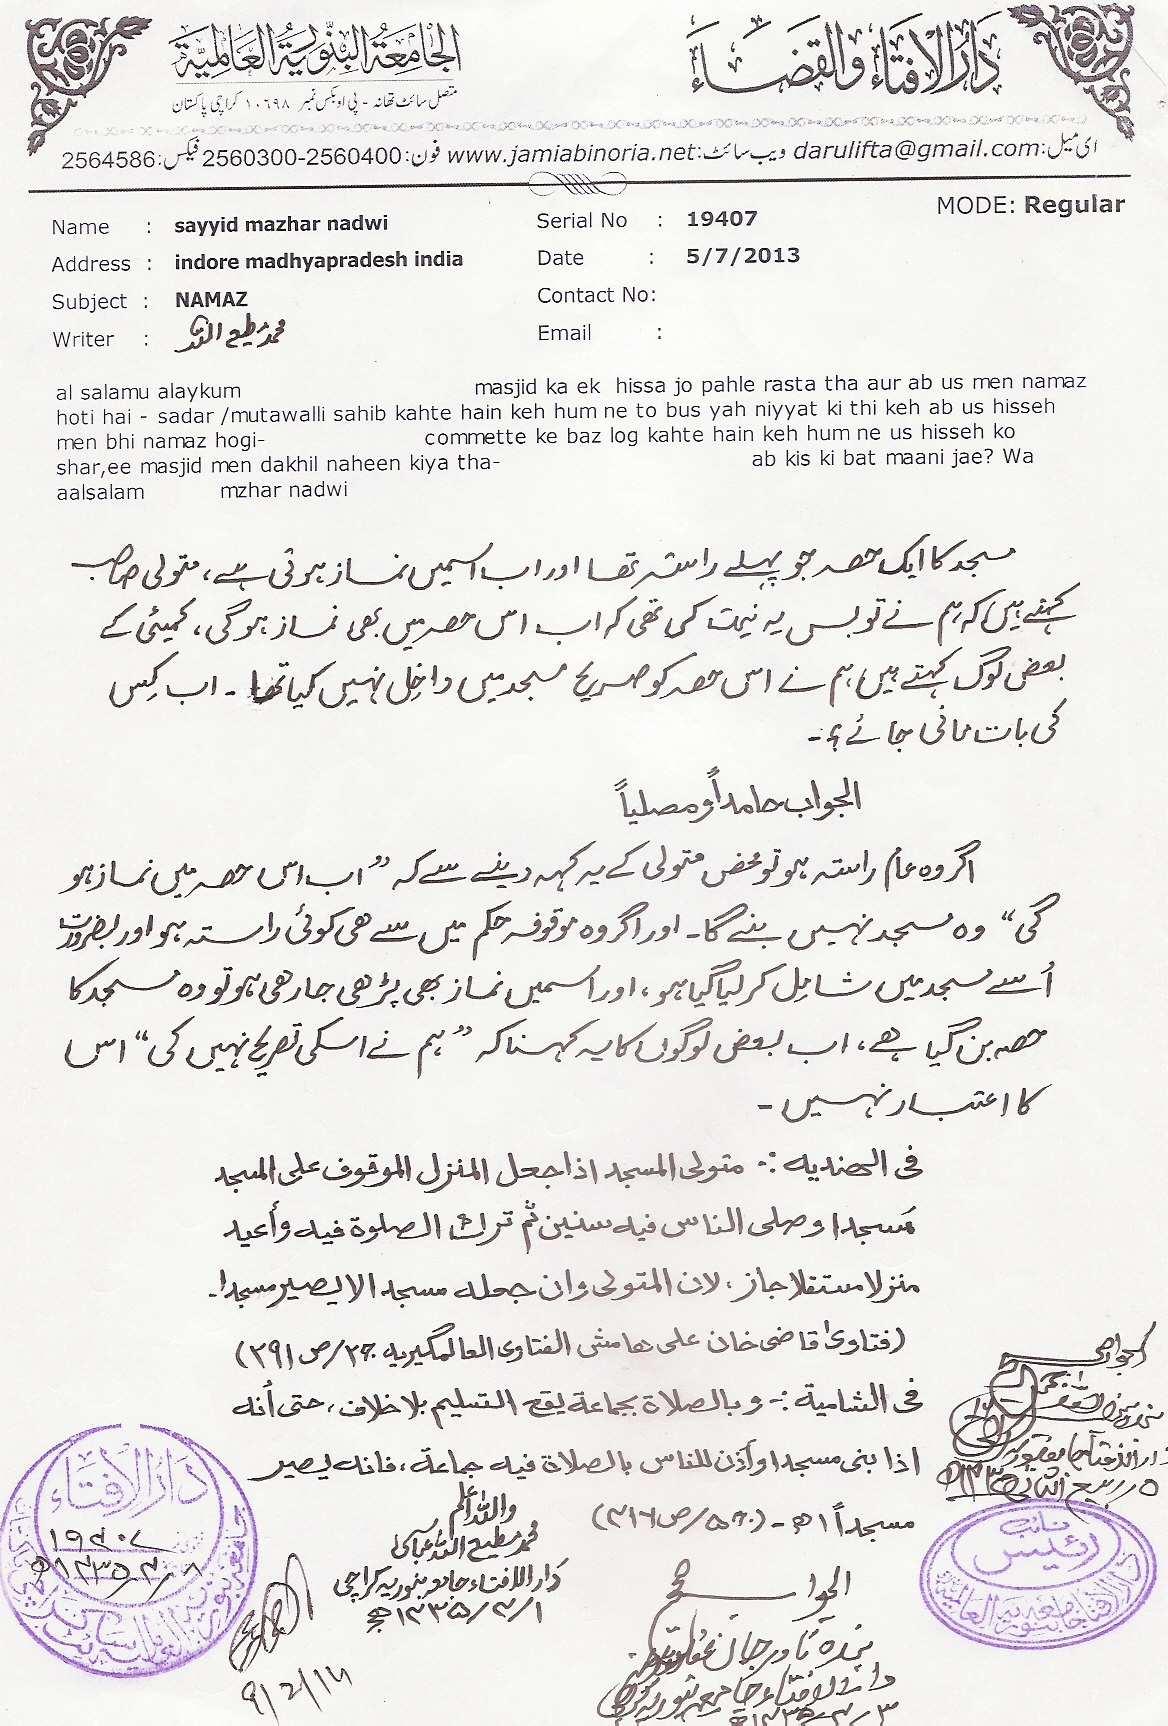 دَارُالاِفتَاءِ وَالقَضَاءِ
الجَامعَةُ البنّوريَّةُ العَالميَّة
متصل سائٹ تھانہ - پی او بکس نمبر ۱۰۶۹۸ کراچی پاکستان
ای میل: darulifta@gmail.com ویب سائٹ: www.jamiabinoria.net فون: 2560300-2560400 فیکس: 2564586
MODE: Regular
Name : sayyid mazhar nadwi Serial No : 19407
Address : indore madhyapradesh india Date : 5/7/2013
Subject : NAMAZ Contact No:
Writer : محمد مطیع اللہ Email :
al salamu alaykum masjid ka ek hissa jo pahle rasta tha aur ab us men namaz
hoti hai - sadar /mutawalli sahib kahte hain keh hum ne to bus yah niyyat ki thi keh ab us hisseh
men bhi namaz hogi- commette ke baz log kahte hain keh hum ne us hisseh ko
shar,ee masjid men dakhil naheen kiya tha- ab kis ki bat maani jae? Wa
aalsalam mzhar nadwi
مسجد کا ایک حصہ جو پہلے راستہ تھا اور اب اسمیں نماز ہوتی ہے، متولی صاحب
کہتے ہیں کہ ہم نے تو بس یہ نیت کی تھی کہ اب اس حصہ میں بھی نماز ہوگی، کمیٹی کے
بعض لوگ کہتے ہیں ہم نے اس حصہ کو صریح مسجد میں داخِل نہیں کیا تھا ۔ اب کِس
کی بات مانی جائے؟۔
الجواب حامداً ومصلیاً
اگر وہ عام راستہ ہو تو محض متولی کے یہ کہہ دینے سے کہ ”اب اس حصہ میں نماز ہو
گی“ وہ مسجد نہیں بنے گا۔ اور اگر وہ موقوفہ حکم میں سے ھی کوئی راستہ ہو اور بضرورت
اُسے مسجد میں شامِل کر لیا گیا ہو، اور اسمیں نماز بھی پڑھی جا رھی ہو تو وہ مسجد کا
حصہ بن گیا ھے، اب بعض لوگوں کا یہ کہنا کہ ”ہم نے اسکی تصریح نہیں کی“ اس
کا اعتبار نہیں ۔
فی الھندیہ :۔ متولی المسجد اذا جعل المنزل الموقوف علی المسجد
مَسجدا وصلی الناس فیه سنین ثم ترك الصلوة فیه وأعید
منزلا مستغلا جاز، لان المتولی وان جعله مسجدا لا یصیر مسجدا۔
(فتاوٰی قاضی خان علی ھامش الفتاوی العالمگیریه ج۳/ص۲۹۱)
فی الشامیة :۔ و بالصلاة بجماعة یقع التسلیم بلا خلاف، حتی أنه
اذا بنی مسجدا وأذن للناس بالصلاة فیه جماعة، فانه یصیر
مسجداً ا ھ ۔ (ج۵/ص۴۱۶)
واللہ اعلم
محمد مطیع اللہ عباسی
دارالافتاء جامعہ بنوریہ کراچی
۱/۴/۱۴۳۵ھ
الجواب صحیح
بندہ ناور جان
دارالافتاء جامعہ بنوریہ کراچی
الجواب صحیح
دارالافتاء جامعہ بنوریہ
ربیع الثانی
دار الافتاء
۱۹۴۰۷
۸/۴/۱۴۳۵ھ
نائب
رئیس
دارالافتاء جامعہ بنوریہ العالمیہ
9/2/14